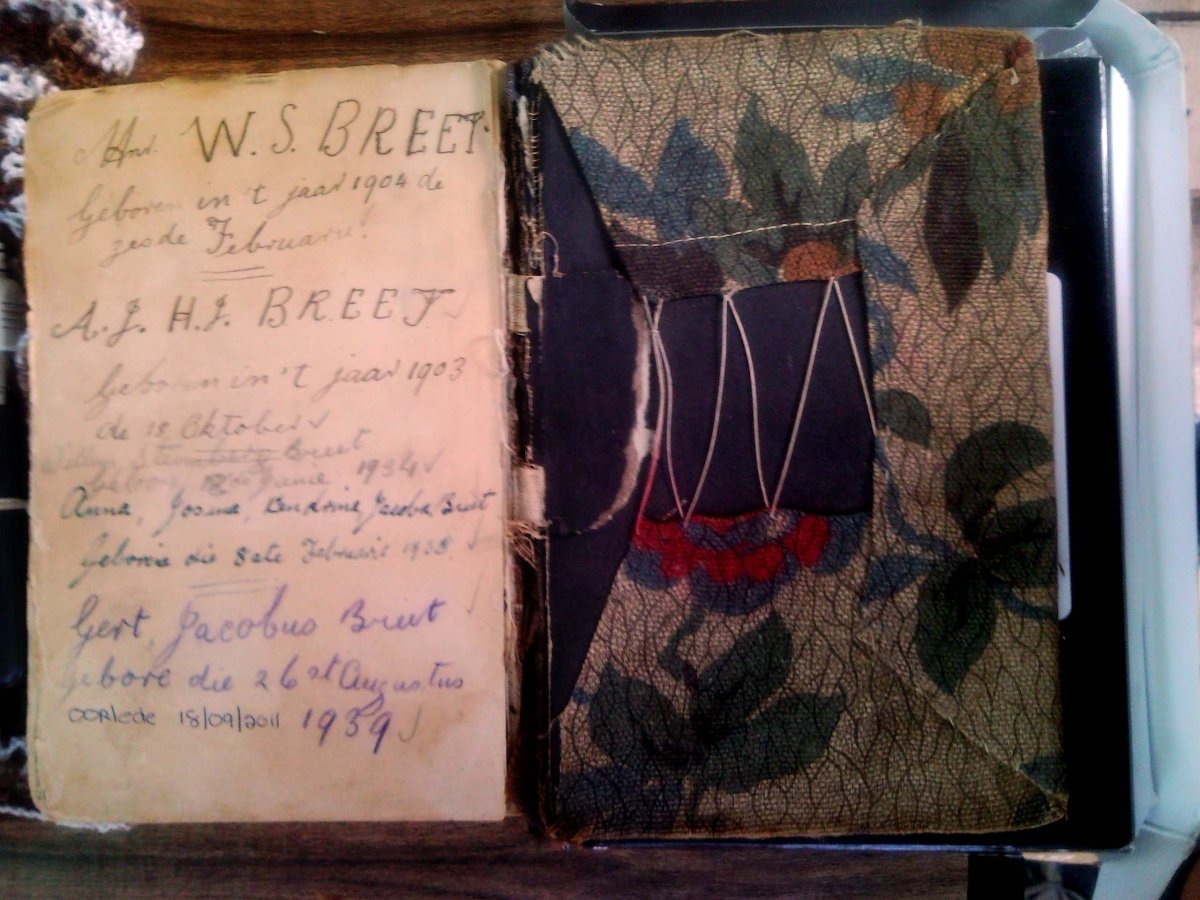 Mnr. W. S. BREET.
Geboren in 't jaar 1904 de
zesde Februarie!
A. J. H. J. BREET ✓
Geboren in 't jaar 1903
de 18 Oktober ✓
Breet
Junie 1934 ✓
Anna, Josina, Hendrina, Jacoba Breet
Gebore die 8ste Februarie
Gert, Jacobus Breet
Gebore die 26st Augustus
OORLEDE 18/09/2011 1939 ✓